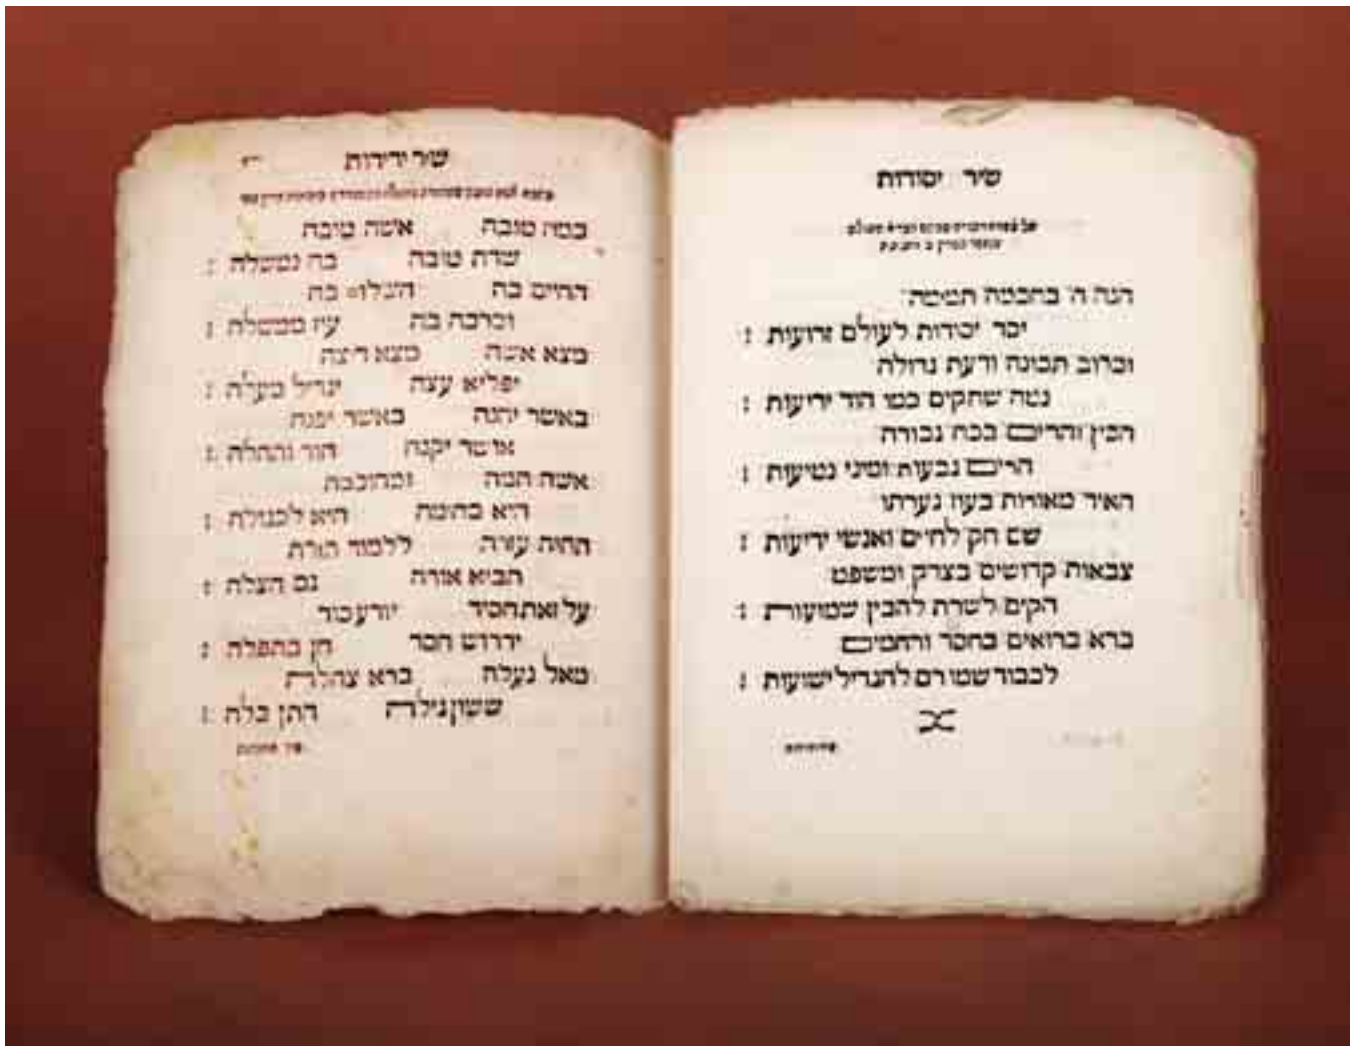 שיר יסודות
הנה ה' בחכמה תמימה
יסד יסודות לעולם זרועות :
וברוב תבונה ודעת גדולה
נטה שחקים כמו הוד יריעות :
הכין והרים בכח גבורה
הרים גבעות ומיני נטיעות :
האיר מאורות בעוז גערתו
שם חק לחיים ואנשי ידיעות :
צבאות קדושים בצדק ומשפט
הקים לשרת להבין שמועות :
ברא ברואים בחסד ורחמים
לכבוד שמו רם להגדיל ישועות :
שיר ידידות
כמה טובה אשה טובה
שדת טובה בה נמשלה :
החיים בה בה
וברכה בה עיז ממשלה :
מצא אשה מצא ריצה
יפליא עצה יגדיל בעלה :
באשר יחנה באשר יפנה
אושר יקנה הוד ותהלה :
אשה חכמה
היא בחומה היא לסגולה :
תהיה עזרה ללמוד תורה
תביא אורה גם הצלה :
על זאת חסיד
ידרוש חסד חן בתפלה :
מאל נעלה ברא צהלה
ששון גילה חתן כלה :